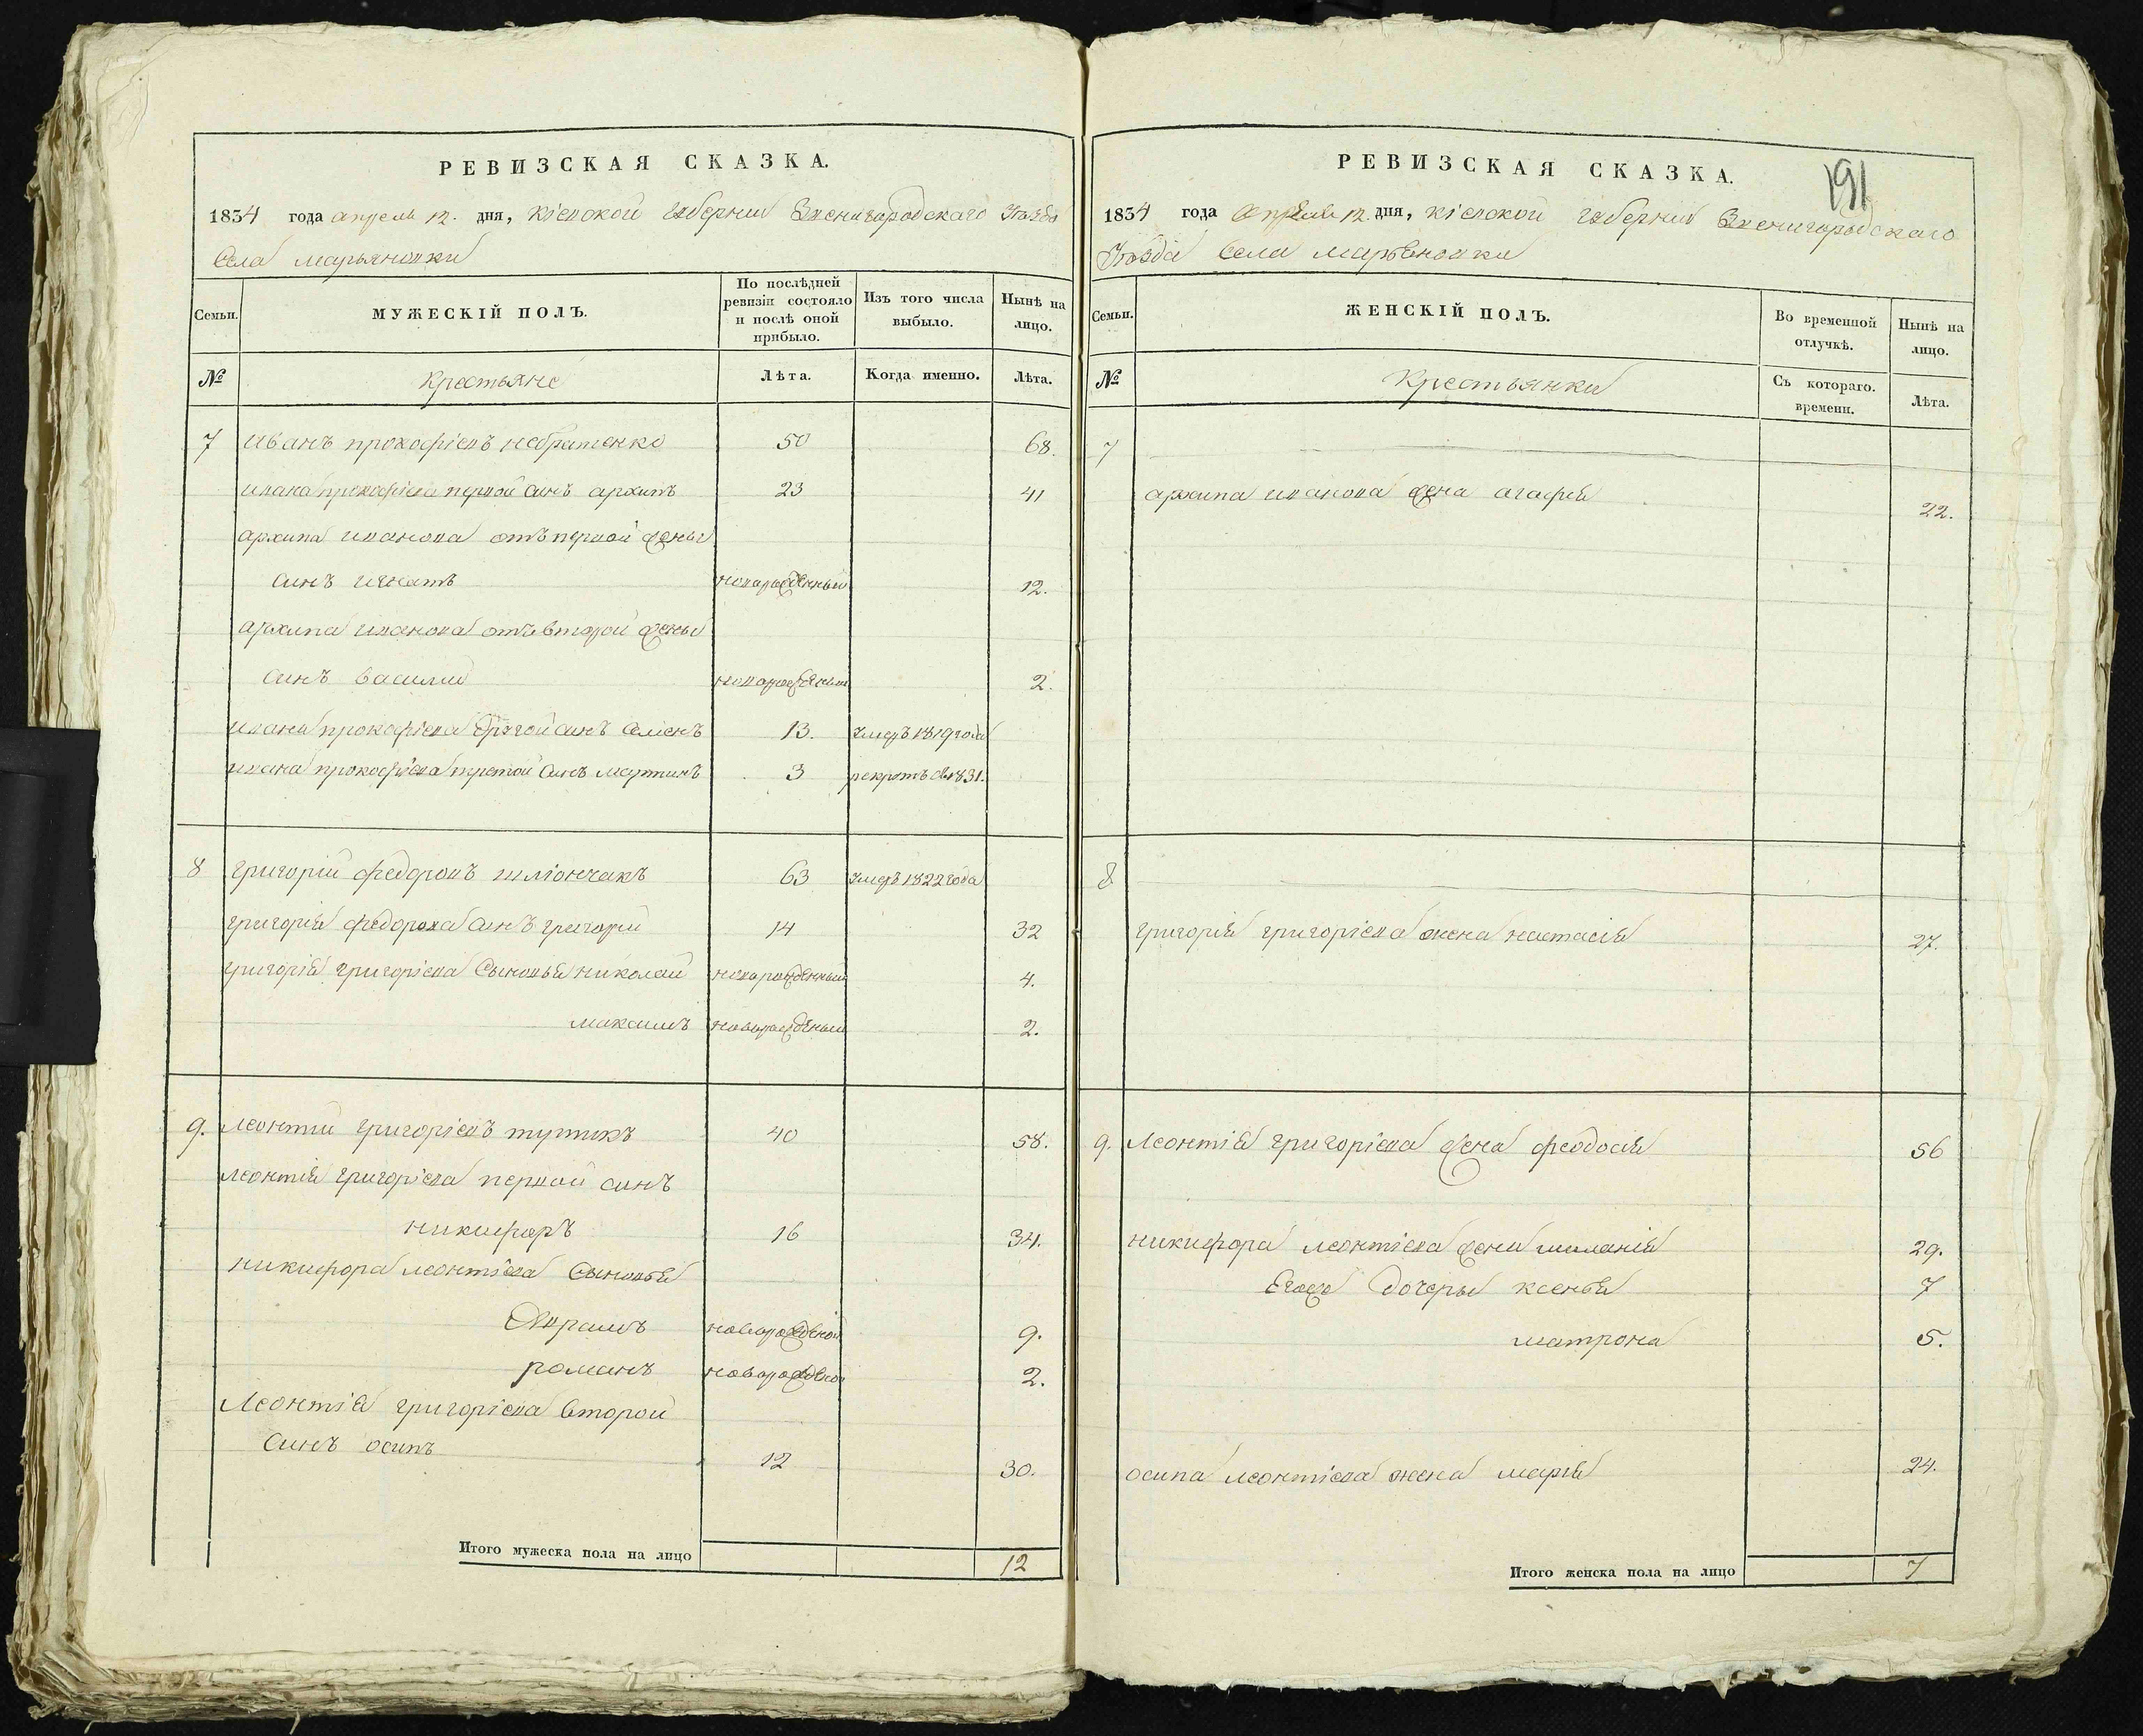 РЕВИЗСКАЯ СКАЗКА.
1834 года апреля 12. дня, кіевской губерніи Звенигородскаго Уезда
Села марьяновки
Семьи.
МУЖЕСКІЙ ПОЛЪ.
По послѣдней ревизіи состояло и послѣ оной прибыло.
Изъ того числа выбыло.
Нынѣ на лицо.
№
Крестьяне
Лѣта.
Когда именно.
Лѣта.
7 иванъ прокофіевъ небратенко 50 68.
ивана прокофіева первой синъ архипъ 23 41
архипа иванова отъ первой жены
синъ игнатъ новорожденный 12.
архипа иванова отъ второй жены
синъ василий новорожденый 2.
ивана прокофіева другой синъ семенъ 13. умеръ 1819 года
ивана прокофіева третой синъ мартинъ 3 рекрутъ 1831.
8 григорій федоровъ шліончакъ 63 умеръ 1822 года
григорія федорова синъ григорій 14 32
григорія григоріева сыновья николай новорожденный 4.
максимъ новорожденый 2.
9. леонтий григоріевъ 40 58.
леонтія григоріева первой синъ
никифоръ 16 34.
никифора леонтіева сыновья
Аврамъ новорожденой 9.
романъ новорожденой 2.
Леонтія григоріева второй
синъ осипъ 12 30.
Итого мужеска пола на лицо 12
РЕВИЗСКАЯ СКАЗКА.
191
1834 года апреля 12. дня, кіевской губерніи Звенигородскаго
Уезда Села марьеновки
Семьи.
ЖЕНСКІЙ ПОЛЪ.
Во временной отлучкѣ.
Нынѣ на лицо.
№
Крестьянки
Съ котораго. времени.
Лѣта.
7
архипа иванова жена агафия 22.
8
григорія григоріева жена настасія 27.
9. Леонтія григоріева жена феодосія 56
никифора леонтіева жена миланія 29.
Егожъ дочеры ксенья 7
матрона 5.
осипа леонтіева жена марія 24.
Итого женска пола на лицо 7